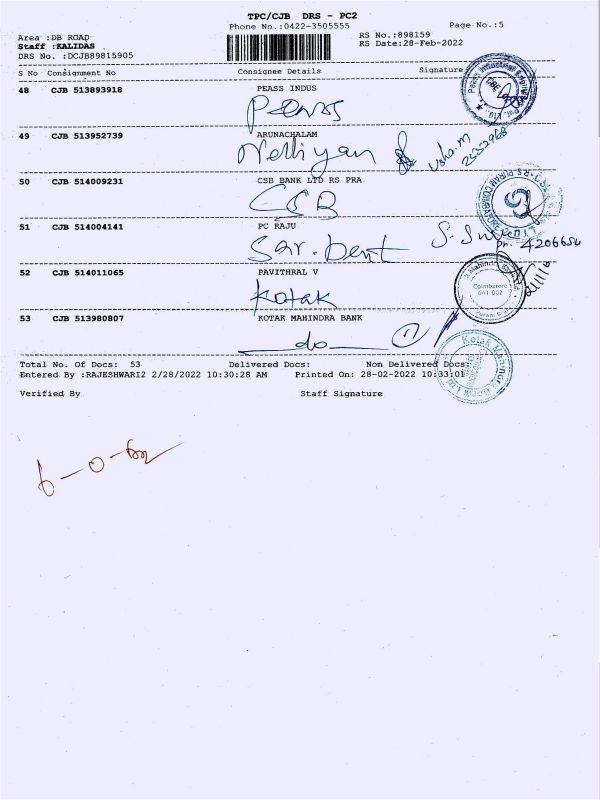 TPC/CJB DRS - PC2
Phone No.:0422-3505555
Page No.:5
Area :DB ROAD
Staff :KALIDAS
DRS No. :DCJB89815905
RS No.:898159
RS Date:28-Feb-2022
S No Consignment No Consignee Details Signature
48 CJB 513893918 PEASS INDUS
Peass
49 CJB 513952739 ARUNACHALAM
Usha.M
50 CJB 514009231 CSB BANK LTD RS PRA
CSB
51 CJB 514004141 PC RAJU
Sar. Dent
4206656
52 CJB 514011065 PAVITHRAL V
Kotak
Coimbatore
641 002
53 CJB 513980807 KOTAK MAHINDRA BANK
do
Kotak Mahindra Bank Ltd
Total No. Of Docs: 53 Delivered Docs: Non Delivered Docs:
Entered By :RAJESHWARI2 2/28/2022 10:30:28 AM Printed On: 28-02-2022 10:33:01
Verified By Staff Signature